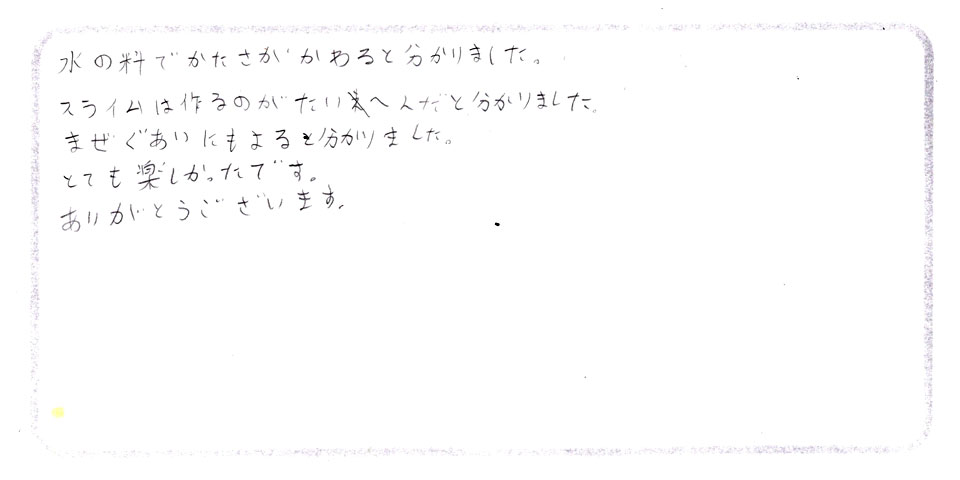 水の料でかたさがかわると分かりました。
スライムは作るのがたいへんだと分かりました。
まぜぐあいにもよると分かりました。
とても楽しかったです。
ありがとうございます。